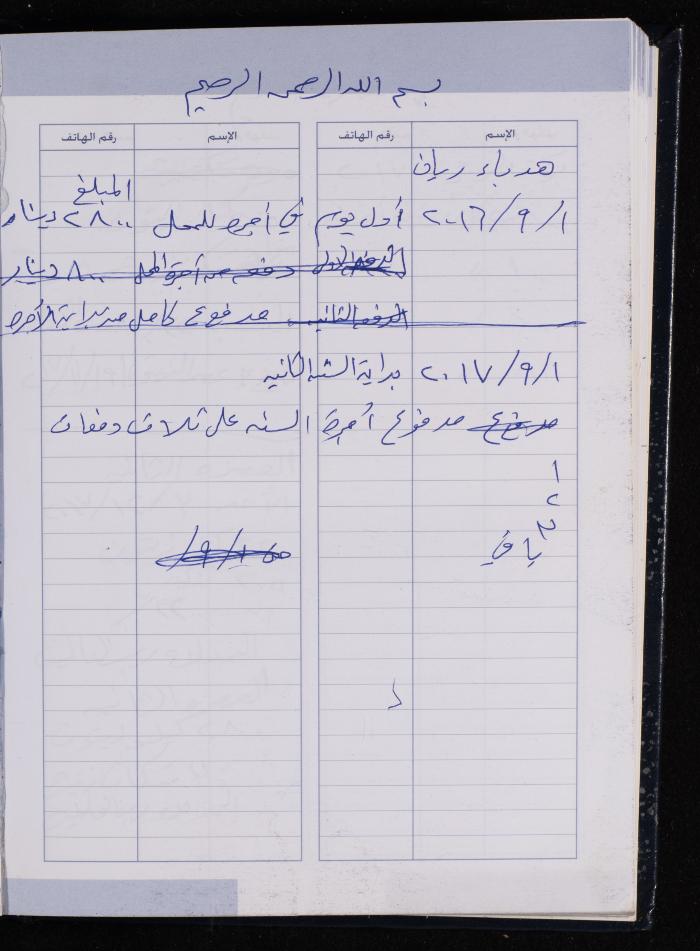 بسم الله الرحمن الرحيم
الإسم رقم الهاتف الإسم رقم الهاتف
هدباء ريان
المبلغ
٢٠١٦/٩/١ أول يوم في أجرة للمحل ٢٨٠٠ دينار
الدفعة الاولى دفعه من أجرة المحل ٨٠٠ دينار
الدفعه الثانيه مدفوع كامل من بداية الأجره
٢٠١٧/٩/١ بداية السنه الثانيه
مدفوع مدفوع أجرة السنه على ثلاث دفعات
١
٢
٣
باقي